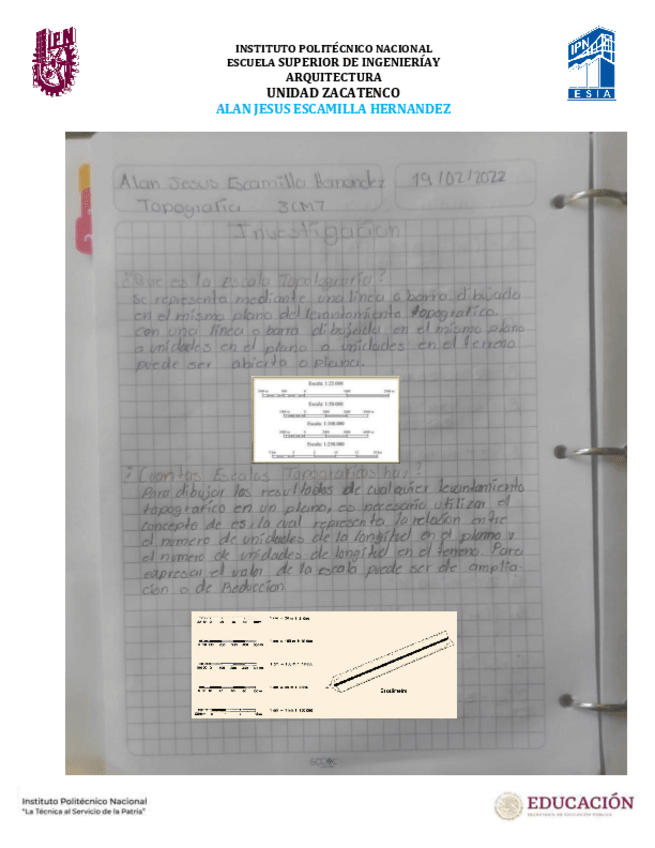 INSTITUTO POLITÉCNICO NACIONAL
ESCUELA SUPERIOR DE INGENIERÍAY
ARQUITECTURA
UNIDAD ZACATENCO
ALAN JESUS ESCAMILLA HERNANDEZ
IPN
IPN
ESIA
Alan Jesus Escamilla Hernandez 19/02/2022
Topografia 3CM7
Investigacion
¿Que es la Escala Topolografia?
Se representa mediante una linea o barra dibujada
en el mismo plano del levantamiento topografico.
con una linea o barra dibujada en el mismo plano
a unidades en el plano a unidades en el terreno
puede ser abierta o plana.
Escala 1:25.000
Escala 1:50.000
Escala 1:100.000
Escala 1:250.000
¿Cuantas Escalas Topograficas hay?
Para dibujar los resultados de cualquier levantamiento
topografico en un plano, es necesario utilizar el
concepto de escala cual representa la relacion entre
el numero de unidades de la longitud en el planno y
el numero de unidades de longitud en el terreno. Para
expresar el valor de la escala puede ser de amplia-
cion o de Reduccion.
Escalímetro
Instituto Politécnico Nacional
"La Técnica al Servicio de la Patria"
EDUCACIÓN
SECRETARÍA DE EDUCACIÓN PÚBLICA